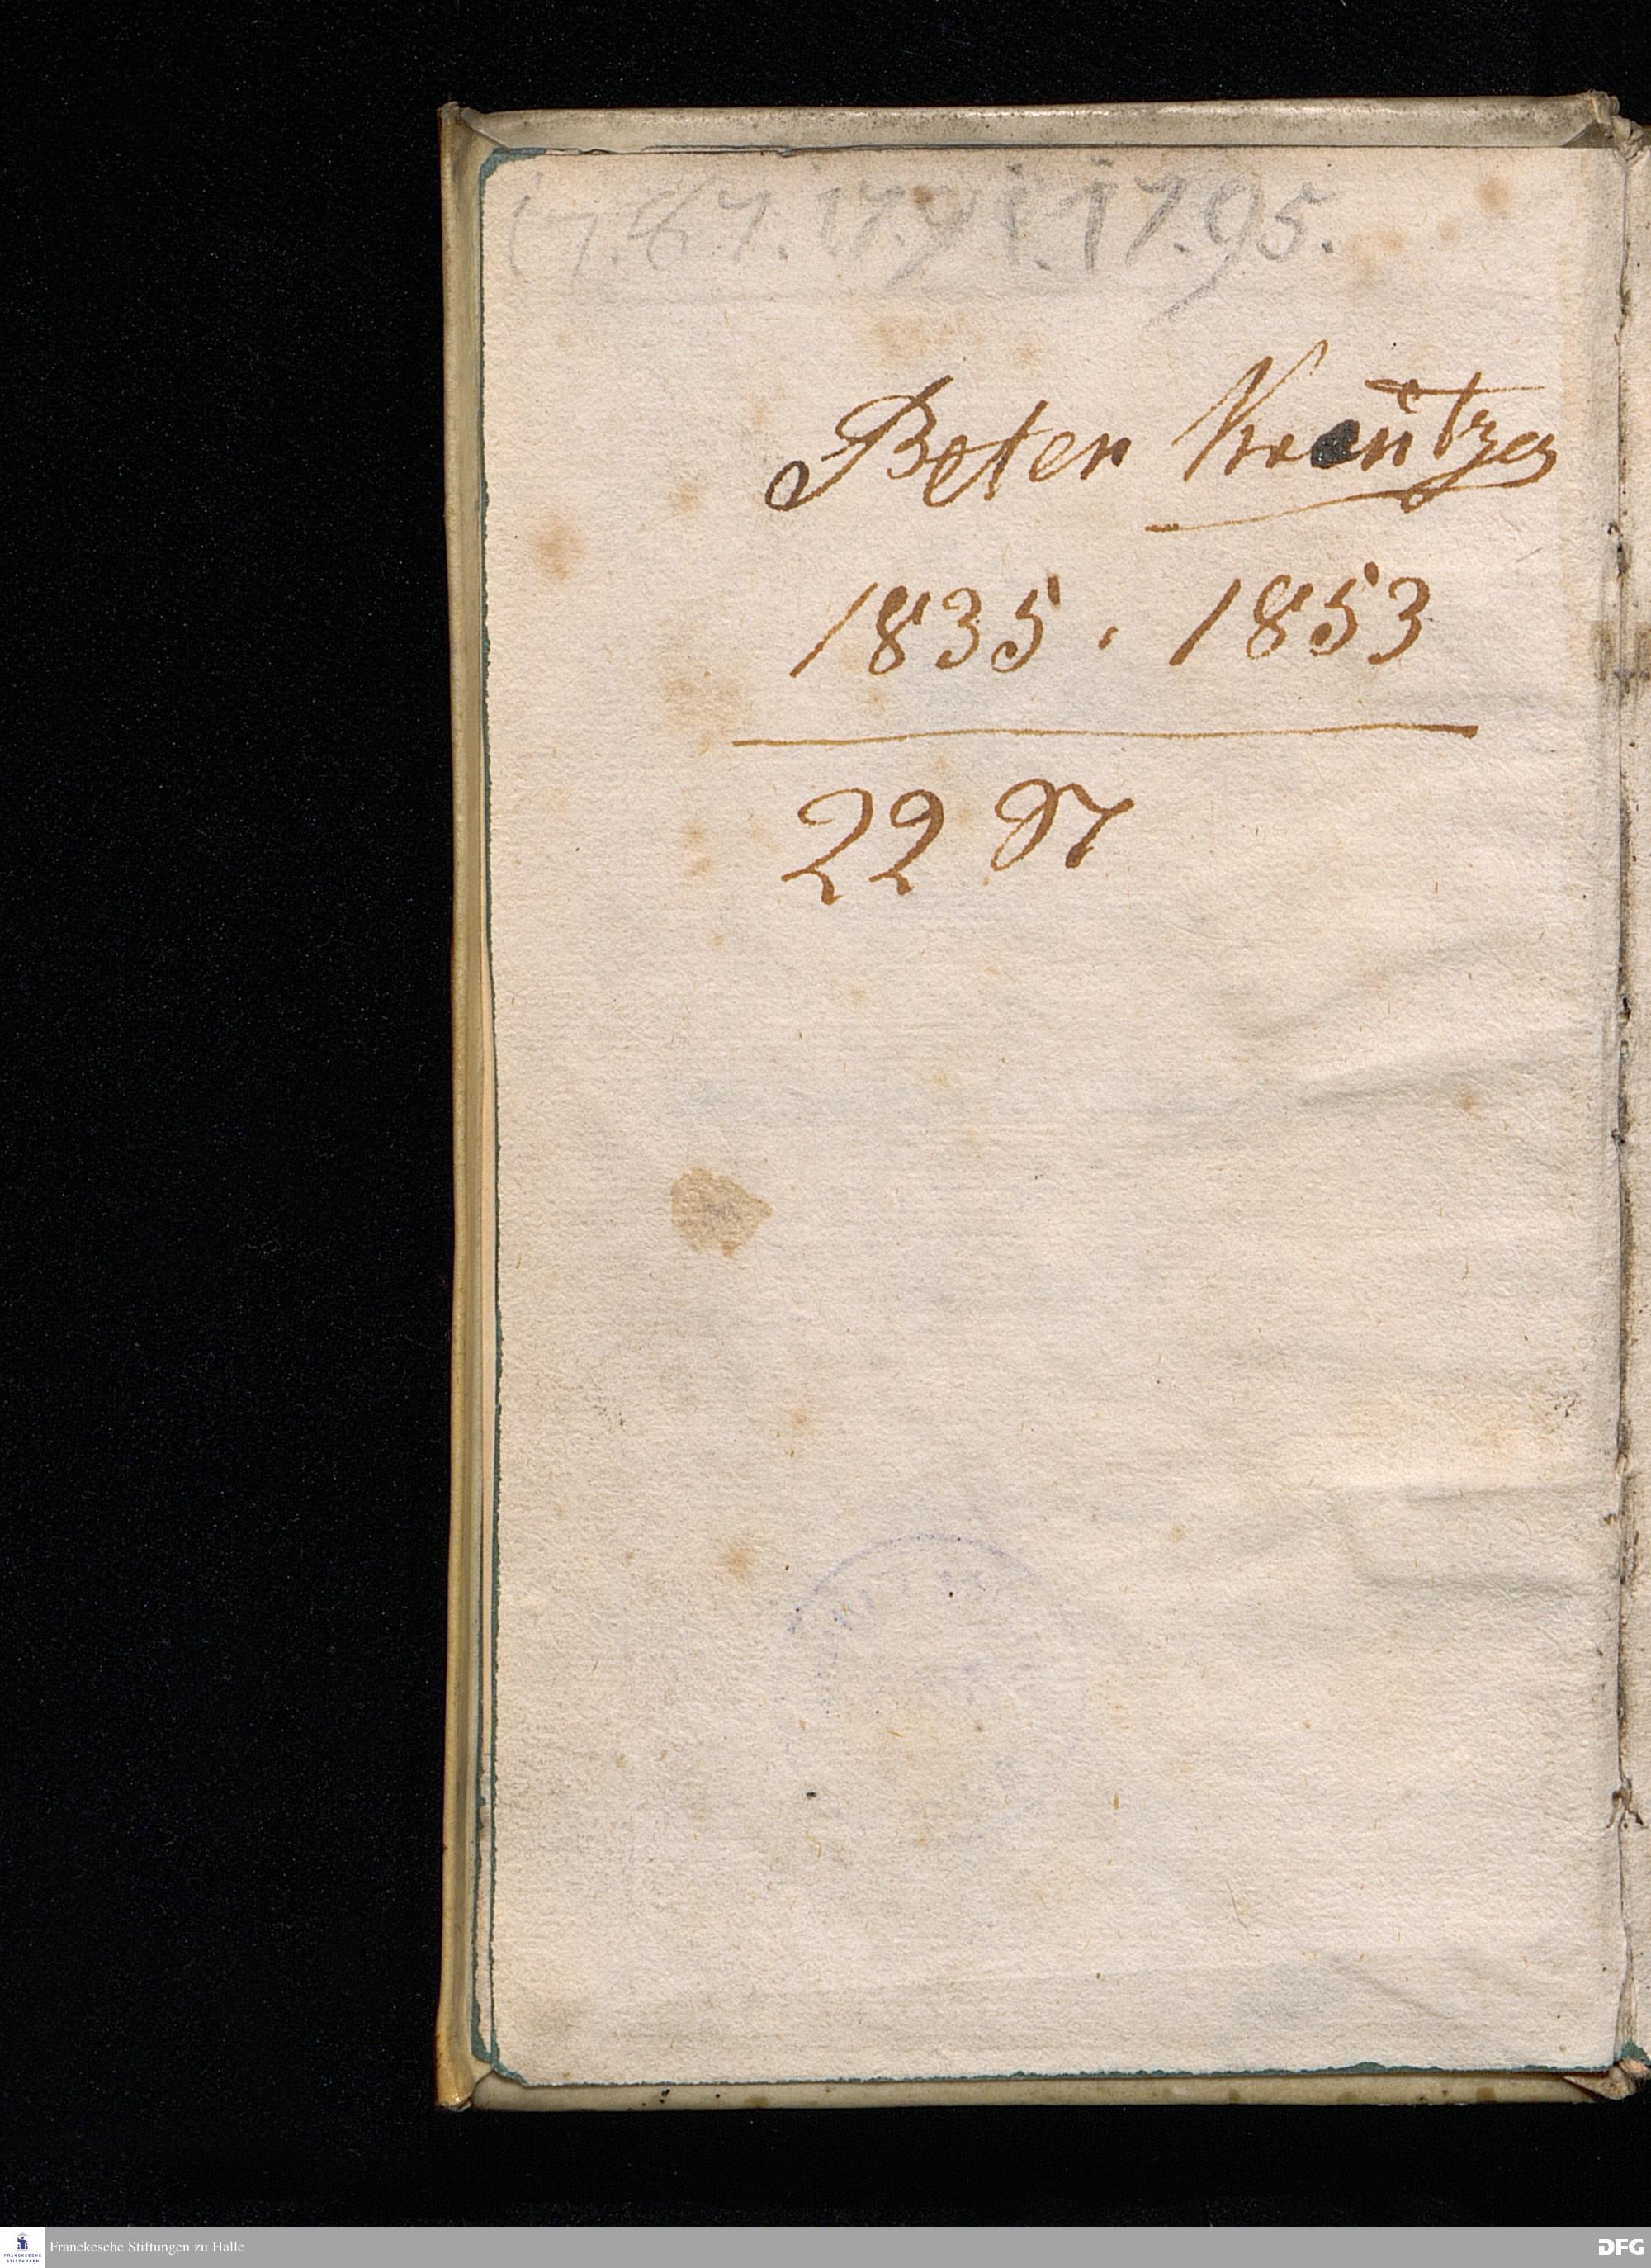 17.67. 17.91. 17.95.
Peter Kreutzer
1835. 1853
22
Franckesche Stiftungen zu Halle
FRANCKESCHE
STIFTUNGEN
DFG